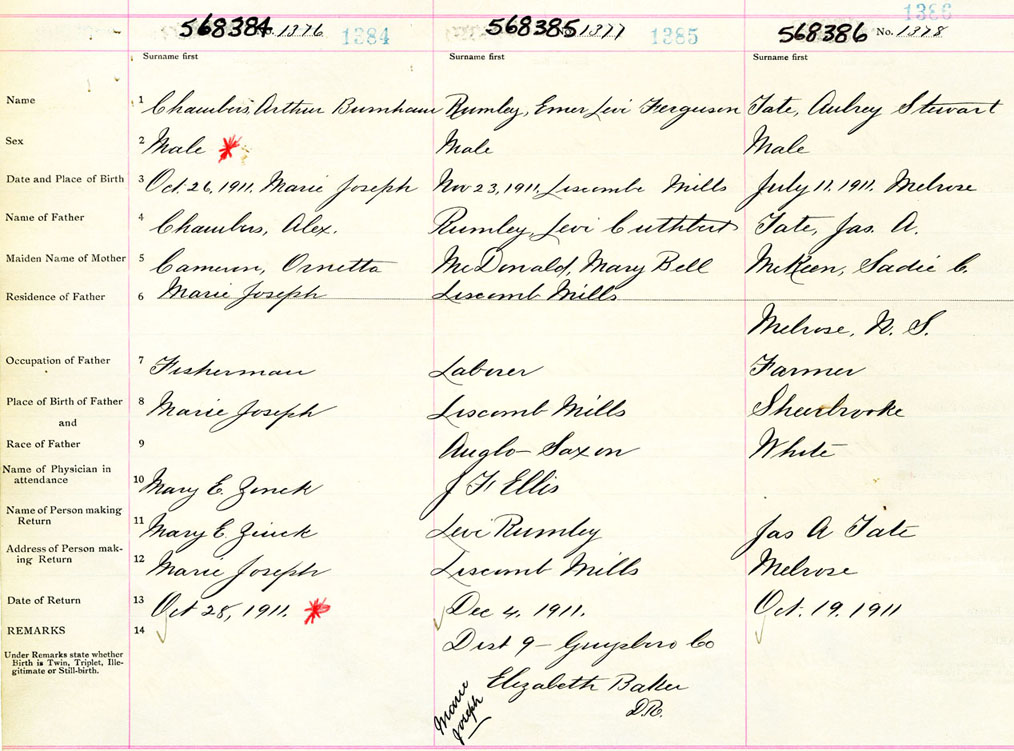 1386
568384 No. 1376 1384 568385 No. 1377 1385 568386 No. 1378
Surname first Surname first Surname first
Name 1 Chambers, Arthur Burnham Rumley, Emer Levi Ferguson Tate, Aubrey Stewart
Sex 2 Male Male Male
Date and Place of Birth 3 Oct. 26, 1911. Marie Joseph Nov 23, 1911. Liscombe Mills July 11. 1911. Melrose
Name of Father 4 Chambers, Alex. Rumley, Levi Cuthbert Tate, Jas. A.
Maiden Name of Mother 5 Cameron, Ornetta McDonald, Mary Bell McKeen, Sadie C.
Residence of Father 6 Marie Joseph Liscomb Mills
Melrose, N. S.
Occupation of Father 7 Fisherman Laborer Farmer
Place of Birth of Father 8 Marie Joseph Liscomb Mills Sherbrooke
and
Race of Father 9 Anglo-Saxon White
Name of Physician in
attendance 10 Mary E. Zinck J F Ellis
Name of Person making
Return 11 Mary E. Zinck Levi Rumley Jas A Tate
Address of Person mak-
ing Return 12 Marie Joseph Liscomb Mills Melrose
Date of Return 13 Oct 28, 1911. Dec 4, 1911. Oct. 19. 1911
REMARKS 14 Dist 9 - Guysboro Co
Under Remarks state whether
Birth is Twin, Triplet, Ille-
gitimate or Still-birth.
Elizabeth Baker
D.R.
Marie
Joseph